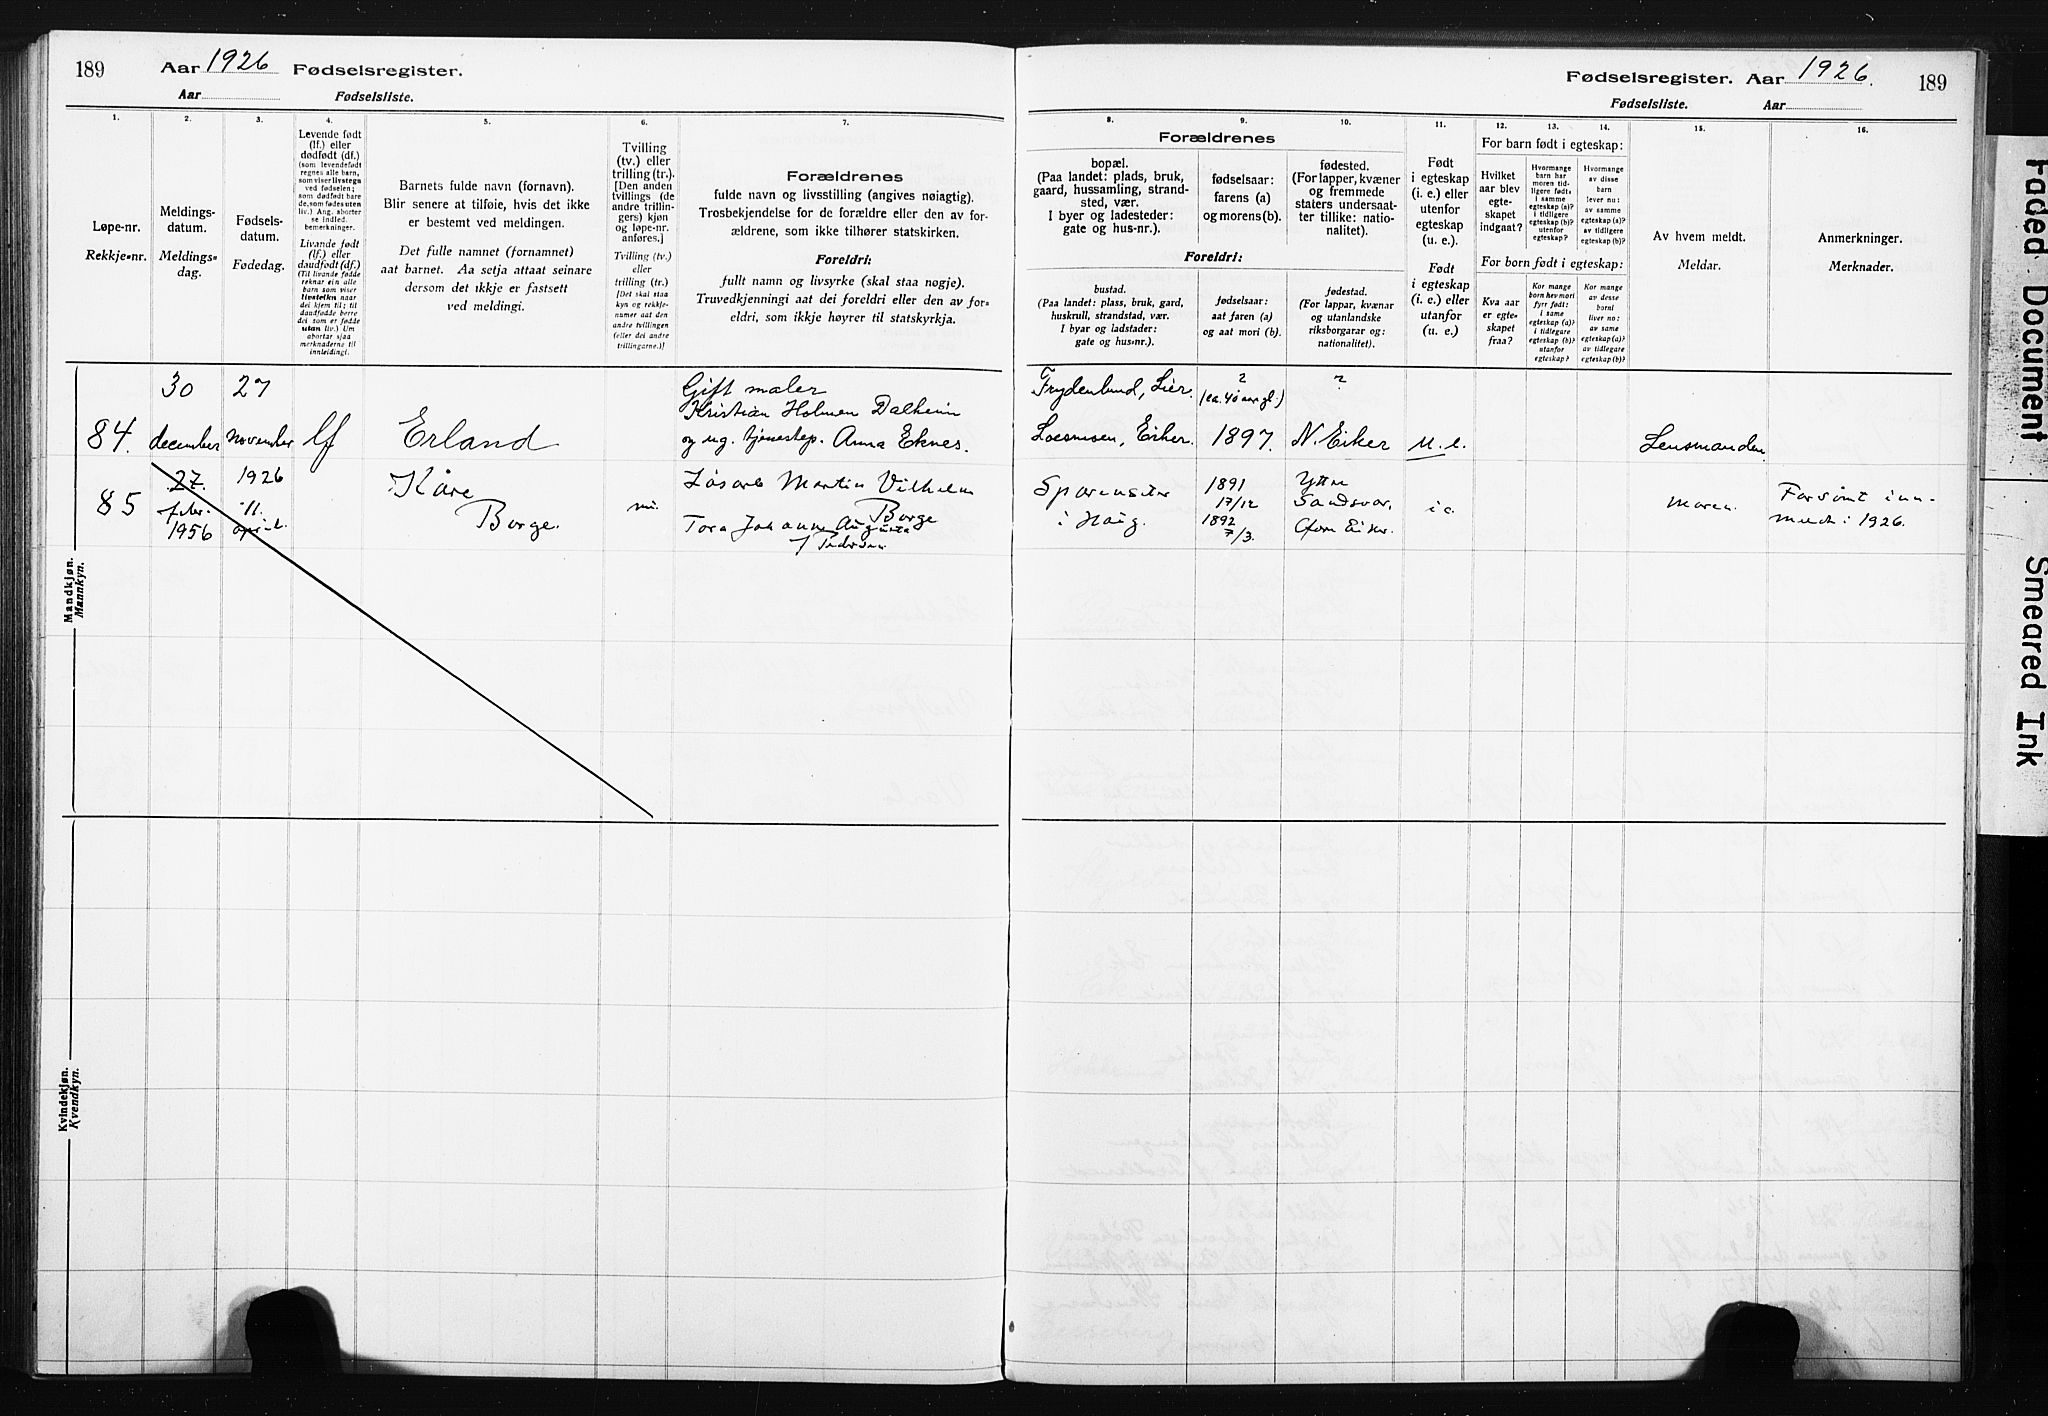 189
Aar 1926 Fødselsregister.
Aar Fødselsliste.
1.
Løpe-nr.
Rekkje-nr.
2.
Meldings-
datum.
Meldings-
dag.
3.
Fødsels-
datum.
Fødedag.
4.
Levende født
(lf.) eller
dødfødt (df.)
(som levendefødt
regnes alle barn,
som viser livstegn
ved fødselen;
som dødfødt bare
de, som fødes uten
liv.) Ang. aborter
se indled.
bemerkninger.
Livande født
(lf.) eller
daudfødt (df.)
(Til livande fødde
reknar ein alle
barn som viser
livsteikn naar
dei kjem til; til
daudfødde berre
dei som er fødde
utan liv.) Um
abortar sjaa
merknaderne til
innleidingi.
5.
Barnets fulde navn (fornavn).
Blir senere at tilføie, hvis det ikke
er bestemt ved meldingen.
Det fulle namnet (fornamnet)
aat barnet. Aa setja attaat seinare
dersom det ikkje er fastsett
ved meldingi.
6.
Tvilling
(tv.) eller
trilling (tr.).
[Den anden
tvillings (de
andre trillin-
gers) kjøn
og løpe-nr.
anføres.]
Tvilling (tv.)
eller
trilling (tr.)
[Det skal staa
kyn og rekkje-
numer aat den
andre tvillingen
(eller dei andre
trillingarne.)]
7.
Forældrenes
fulde navn og livsstilling (angives nøiagtig).
Trosbekjendelse for de forældre eller den av for-
ældrene, som ikke tilhører statskirken.
Foreldri:
fullt namn og livsyrke (skal staa nøgje).
Truvedkjenningi aat dei foreldri eller den av for-
eldri, som ikkje høyrer til statskyrkja.
Mandkjøn.
Mannkyn.
84.
30
december
27
november
lf
Erland
Gift maler
Kristian Holmen Dalheim
og ug. tjenestep. Anna Eknes.
85
27.
febr.
1956
1926
11.
april.
Kåre
Borge.
Martin Vilhelm
Borge
Tora Johanne Augusta
f Pedersen
Kvindekjøn.
Kvendkyn.
Fødselsregister. Aar 1926.
189
Fødselsliste. Aar
8.
Forældrenes
bopæl.
(Paa landet: plads, bruk,
gaard, hussamling, strand-
sted, vær.
I byer og ladesteder:
gate og hus-nr.).
Foreldri:
bustad.
(Paa landet: plass, bruk, gard,
huskrull, strandstad, vær.
I byar og ladstader:
gate og hus-nr.).
9.
fødselsaar:
farens (a)
og morens (b).
fødselsaar:
aat faren (a)
og aat mori (b).
10.
fødested.
(For lapper, kvæner
og fremmede
staters undersaat-
ter tillike: natio-
nalitet).
fødestad.
(For lappar, kvænar
og utanlandske
riksborgarar og:
nationalitet).
11.
Født
i egteskap
(i. e.) eller
utenfor
egteskap
(u. e.).
Født
i egteskap
(i. e.) eller
utanfor
(u. e.)
12.
13.
14.
For barn født i egteskap:
Hvilket
aar blev
egte-
skapet
indgaat?
Hvormange
barn har
moren tid-
ligere født:
i samme
egteskap (a)?
i tidligere
egteskap (b)?
utenfor
egteskap?
Hvormange
av disse
barn
lever nu:
av samme
egteskap (a)?
av tidligere
egteskap (b)?
For born født i egteskap:
Kva aar
er egte-
skapet
fraa?
Kor mange
born hev mori
fyrr født:
i same
egteskap (a)?
i tidlegare
egteskap (b)?
utanfor
egteskap?
Kor mange
av desse
borni
liver no:
av same
egteskap (a)?
av tidlegare
egteskap (b)?
15.
Av hvem meldt.
Meldar.
16.
Anmerkninger.
Merknader.
Frydenlund, Lier.
?
(ca. 40 aar gl.)
?
Loesmoen, Eiker.
1897.
N. Eiker
u.e.
Lensmanden
i Haug.
1891
17/12
1892
7/3.
Ytre
Sandsvær.
Øvre Eiker.
i e.
moren.
Forsømt inn-
meldt i 1926.
Faded Document
Smeared Ink